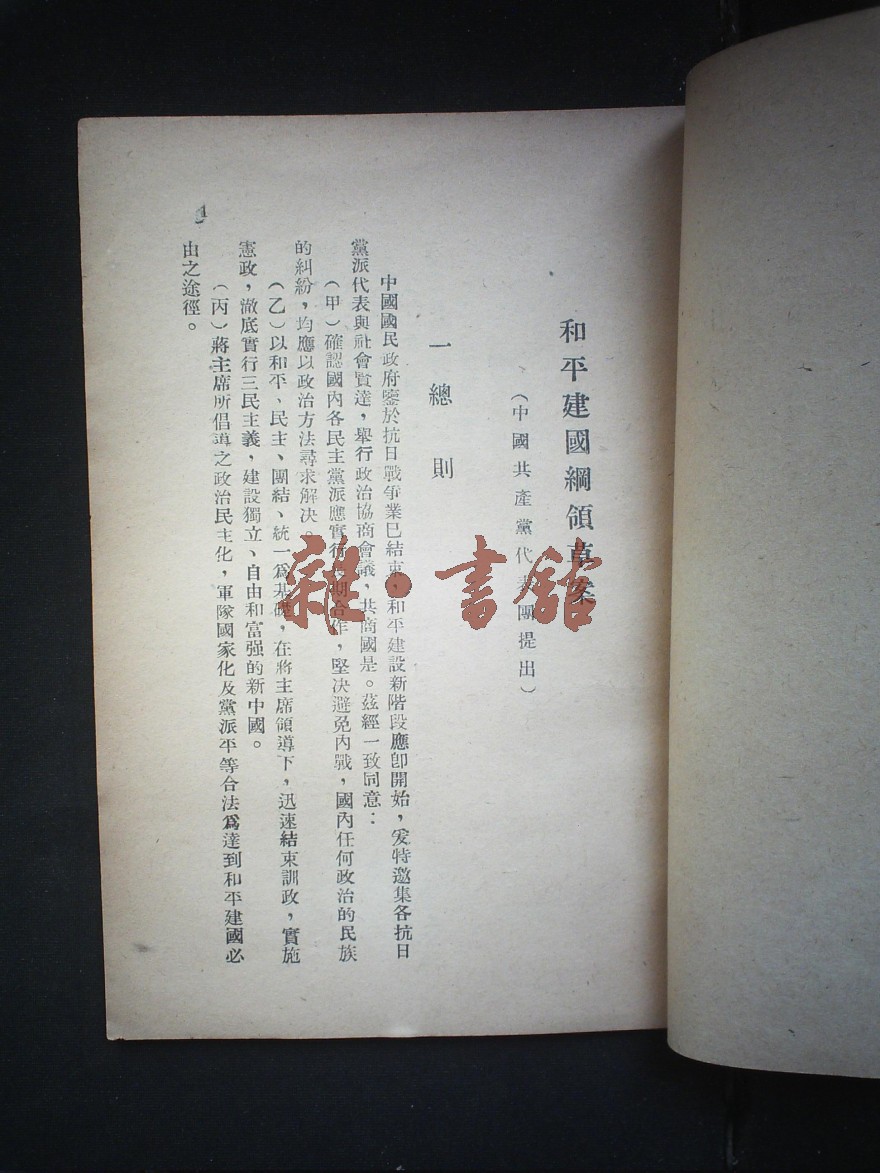 和平建國綱領草案
（中國共產黨代表團提出）
一總則
中國國民政府鑒於抗日戰爭業已結束，和平建設新階段應卽開始，爰特邀集各抗日
黨派代表與社會賢達，舉行政治協商會議，共商國是。茲經一致同意：
（甲）確認國內各民主黨派應實行 期合作，堅決避免內戰，國內任何政治的民族
的糾紛，均應以政治方法尋求解决。
（乙）以和平、民主、團結、統一爲基礎，在蔣主席領導下，迅速結束訓政，實施
憲政，澈底實行三民主義，建設獨立、自由和富强的新中國。
（丙）蔣主席所倡導之政治民主化，軍隊國家化及黨派平等合法爲達到和平建國必
由之途徑。
1
雜·書館